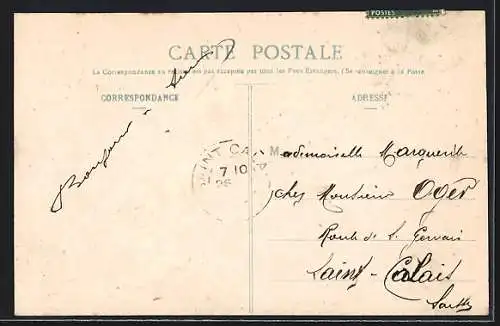 POSTES
CARTE POSTALE
La Correspondance au recto n'est pas acceptée par tous les Pays Étrangers. (Se renseigner à la Poste
CORRESPONDANCE
ADRESSE
Bonjour à
SAINT CALA
7 10
25
Mademoiselle Marguerite
chez Monsieur Oger
Route de S. Gervais
Saint-Calais
Sarthe